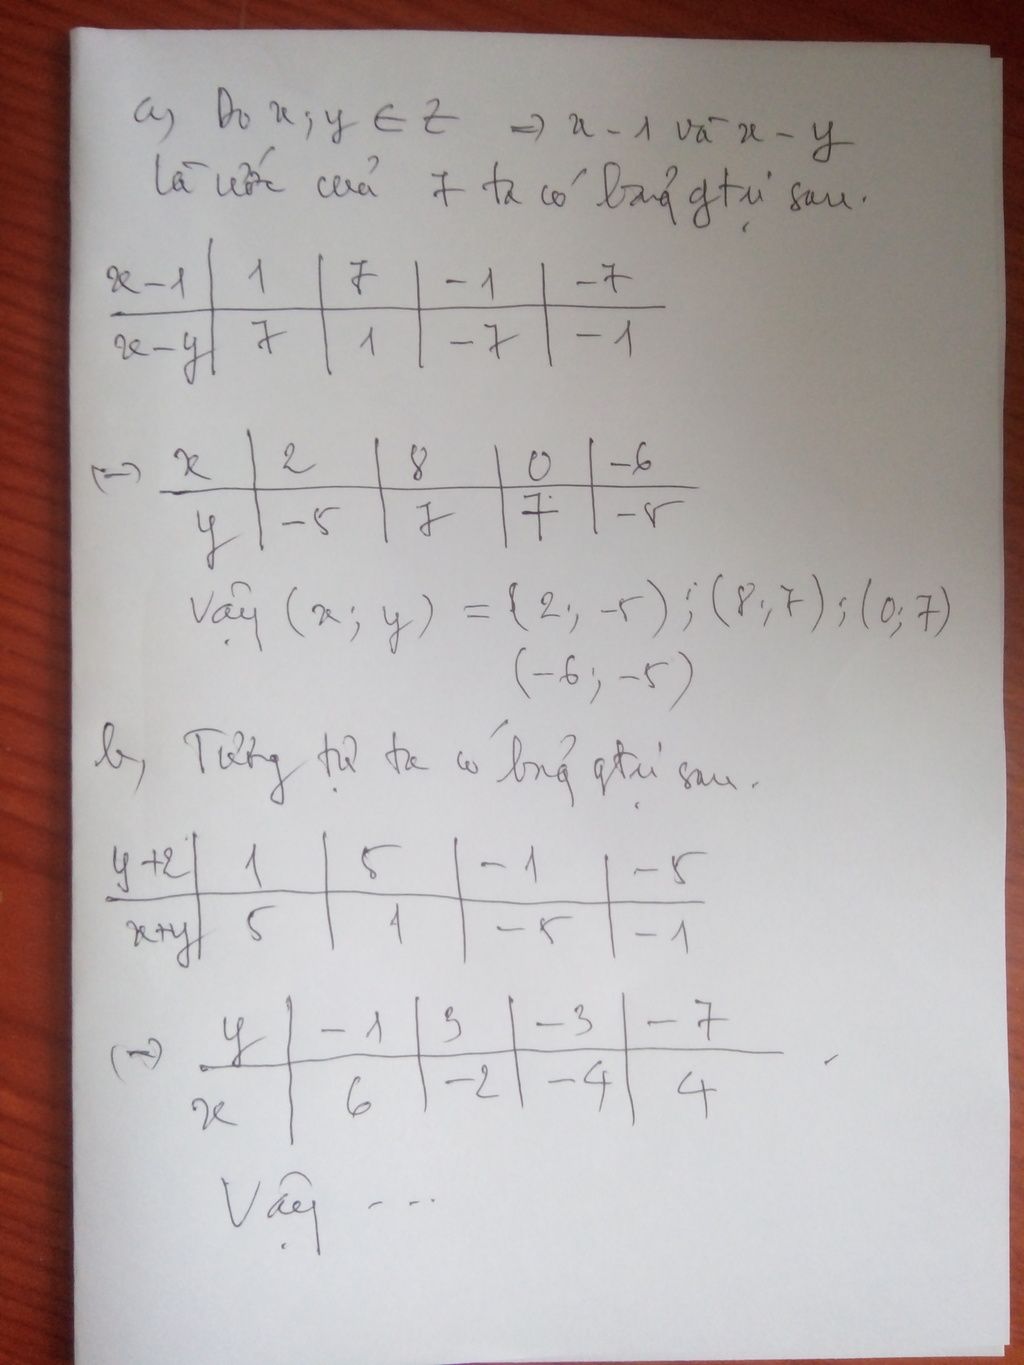 a, Do x; y ∈ Z => x - 1 và x - y
là ước của 7 ta có bảng gtrị sau.
x-1 | 1 | 7 | -1 | -7
x-y | 7 | 1 | -7 | -1
(=) x | 2 | 8 | 0 | -6
y | -5 | 7 | 7 | -5
Vậy (x; y) = (2; -5); (8; 7); (0; 7)
(-6; -5)
b, Tương tự ta có bảng gtrị sau.
y+2 | 1 | 5 | -1 | -5
x+y | 5 | 1 | -5 | -1
(=) y | -1 | 3 | -3 | -7
x | 6 | -2 | -4 | 4
Vậy ...